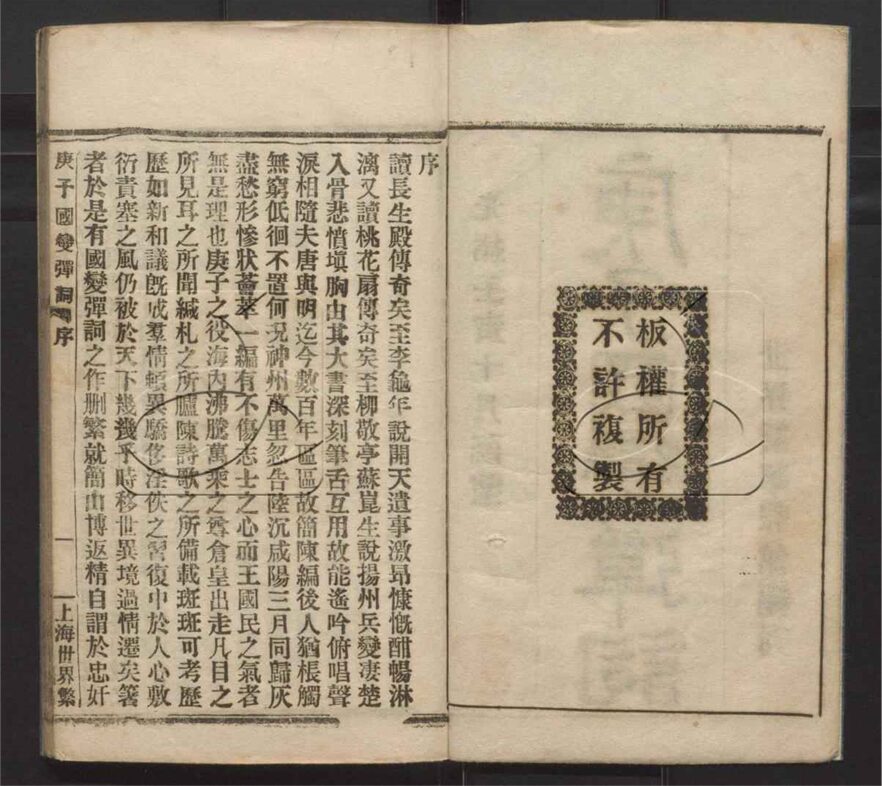 板權所有
不許複製
序
讀長生殿傳奇矣至李龜年說開天遺事激昂慷慨酣暢淋
漓又讀桃花扇傳奇矣至柳敬亭蘇崑生說揚州兵變凄楚
入骨悲憤塡胸由其大書深刻筆舌互用故能遙吟俯唱聲
淚相隨夫唐與明迄今數百年區區故簡陳編後人猶棖觸
無窮低徊不置何况神州萬里忽告陸沉咸陽三月同歸灰
盡愁形慘狀薈萃一編有不傷志士之心而王國民之氣者
無是理也庚子之役海內沸騰萬乘之尊倉皇出走凡目之
所見耳之所聞緘札之所臚陳詩歌之所備載斑斑可考歷
歷如新和議旣成羣情頓異驕侈淫佚之習復中於人心敷
衍責塞之風仍被於天下幾幾乎時移世異境過情遷矣箸
者於是有國變彈詞之作删繁就簡由博返精自謂於忠奸
庚子國變彈詞 序 一 上海世界繁